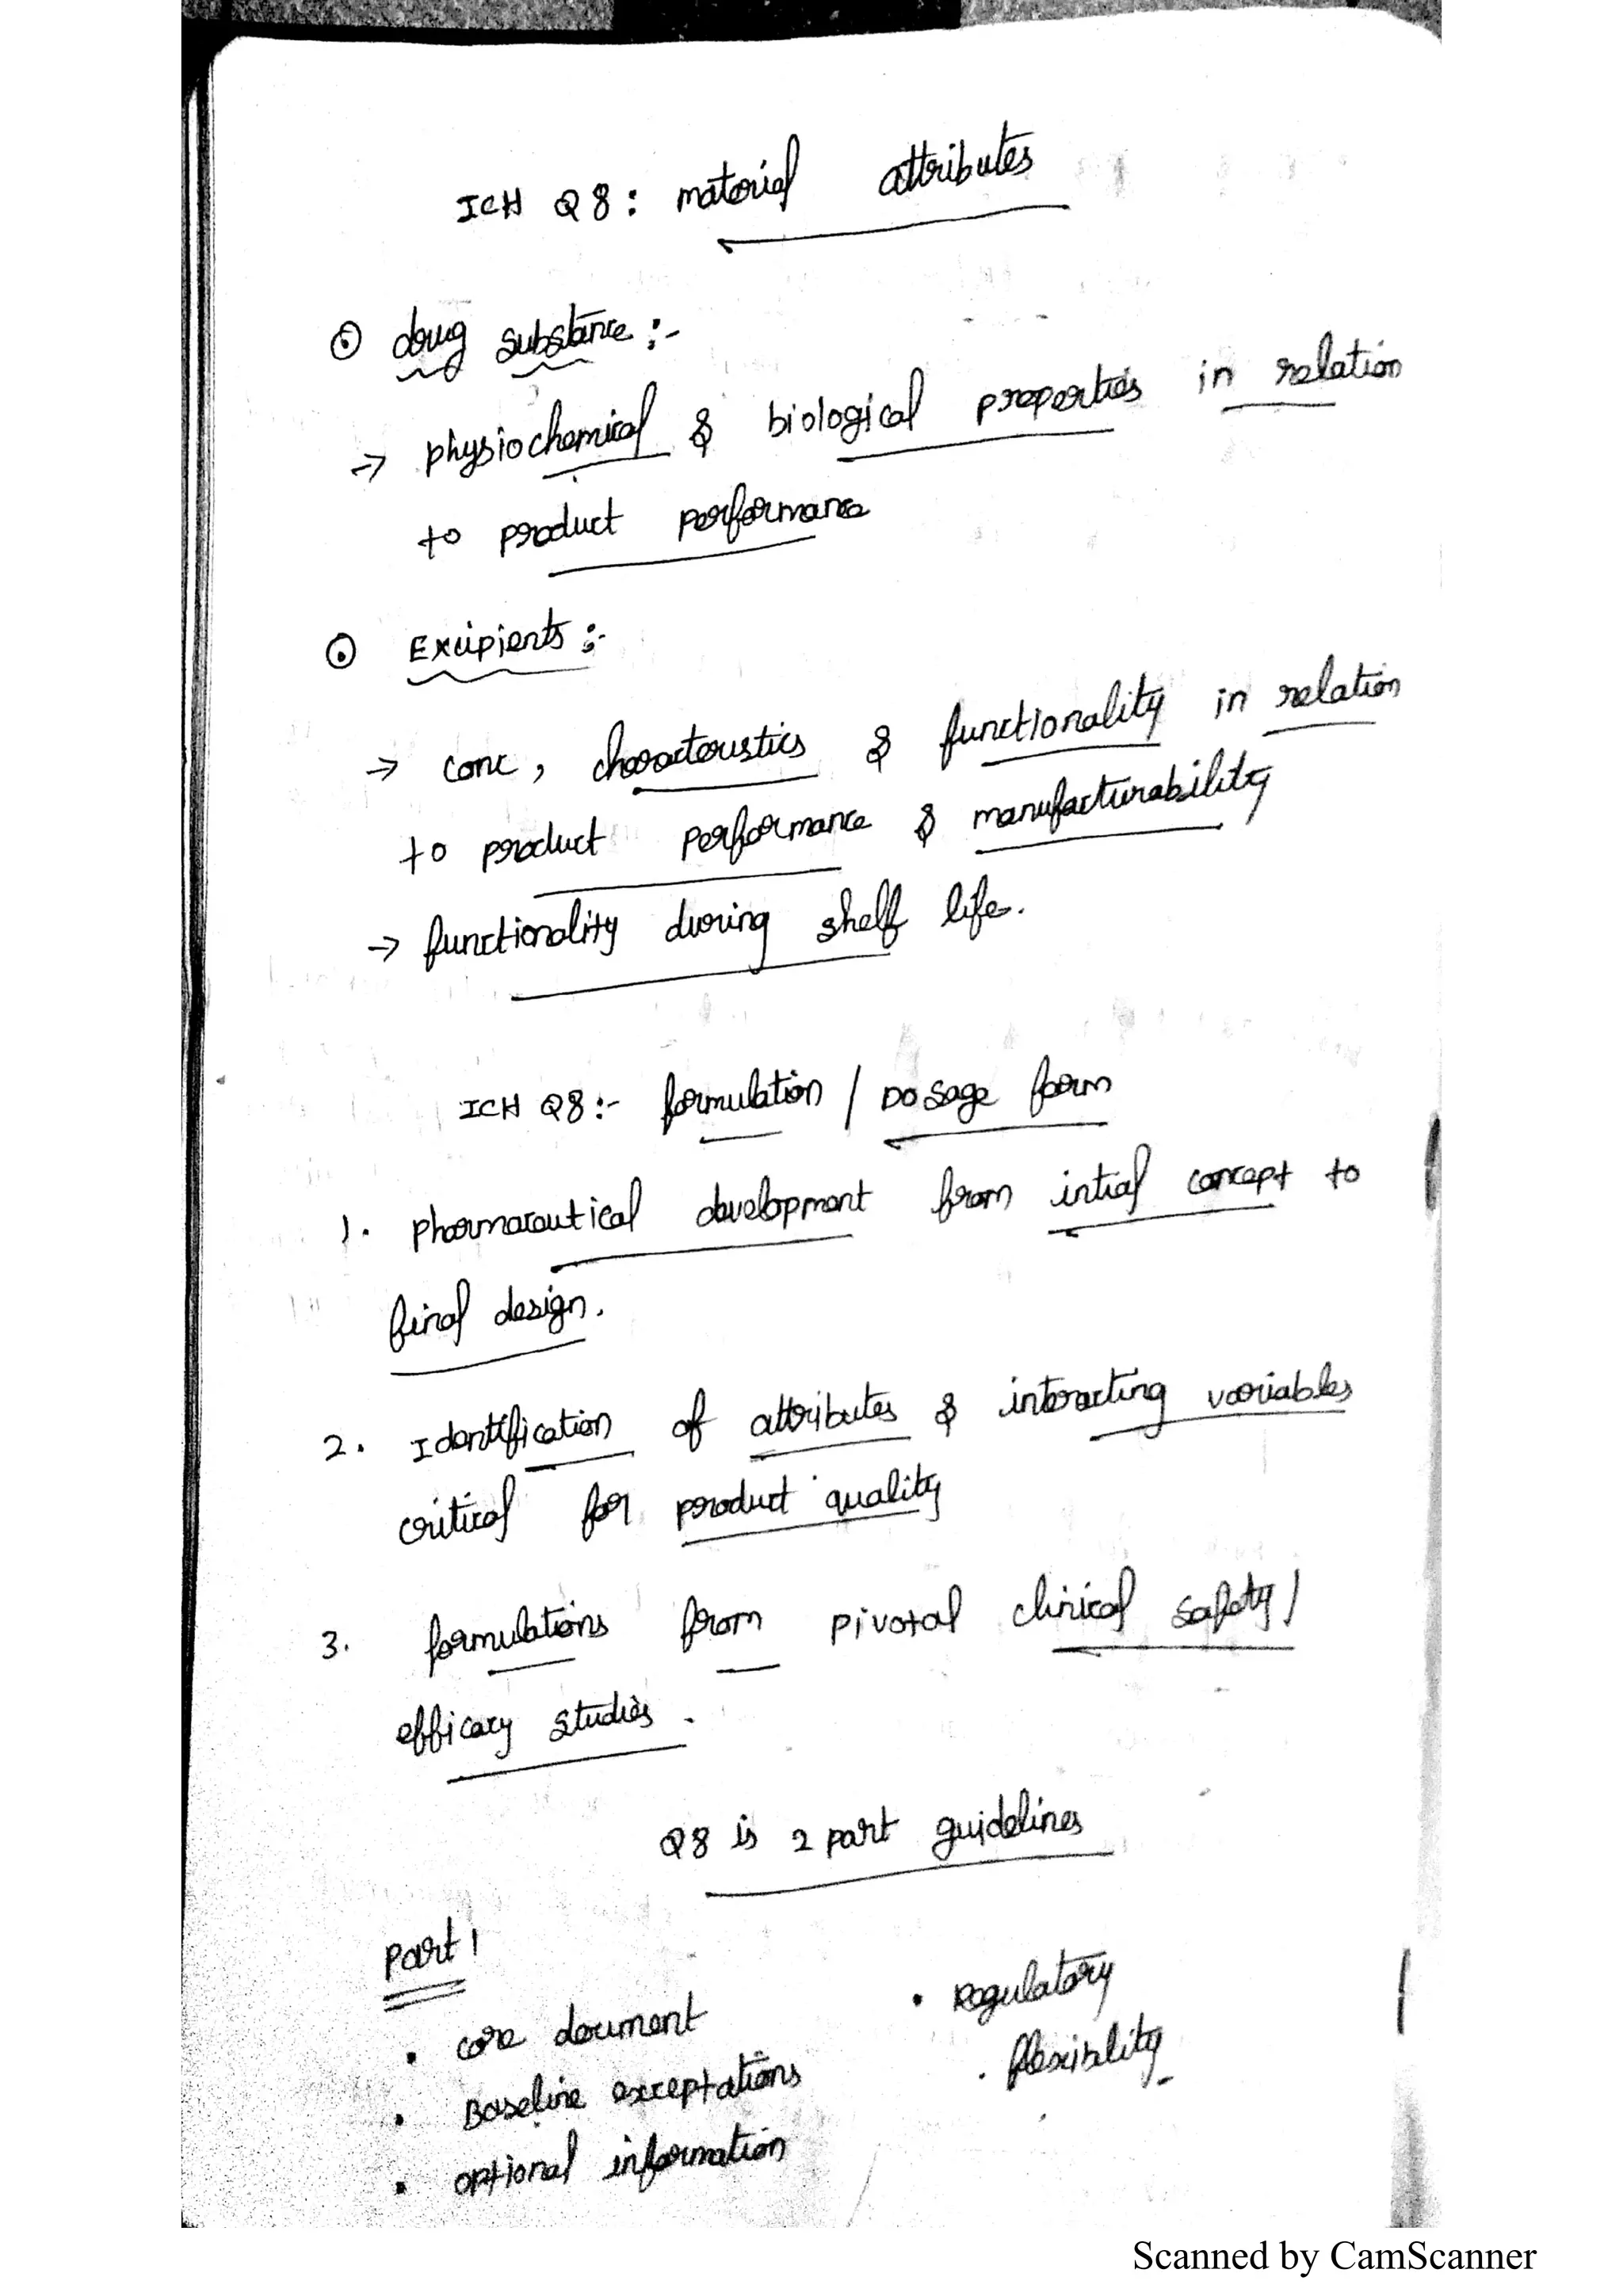 ICH Q8: material attributes
⊙ drug substance :-
→ physiochemical & biological properties in relation
to product performance
⊙ Excipients :-
→ conc, characteristics & functionality in relation
to product performance & manufacturability
→ functionality during shelf life.
ICH Q8:- formulation / Dosage form
1. pharmaceutical development from intial concept to
final design.
2. Identification of attributes & interacting variables
critical for product quality
3. formulations from pivotal clinical safety/
efficacy studies.
Q8 is 2 part guidelines
part 1
• core document
• Baseline exceptations
• optional information
• Regulatory
. flexibility
Scanned by CamScanner